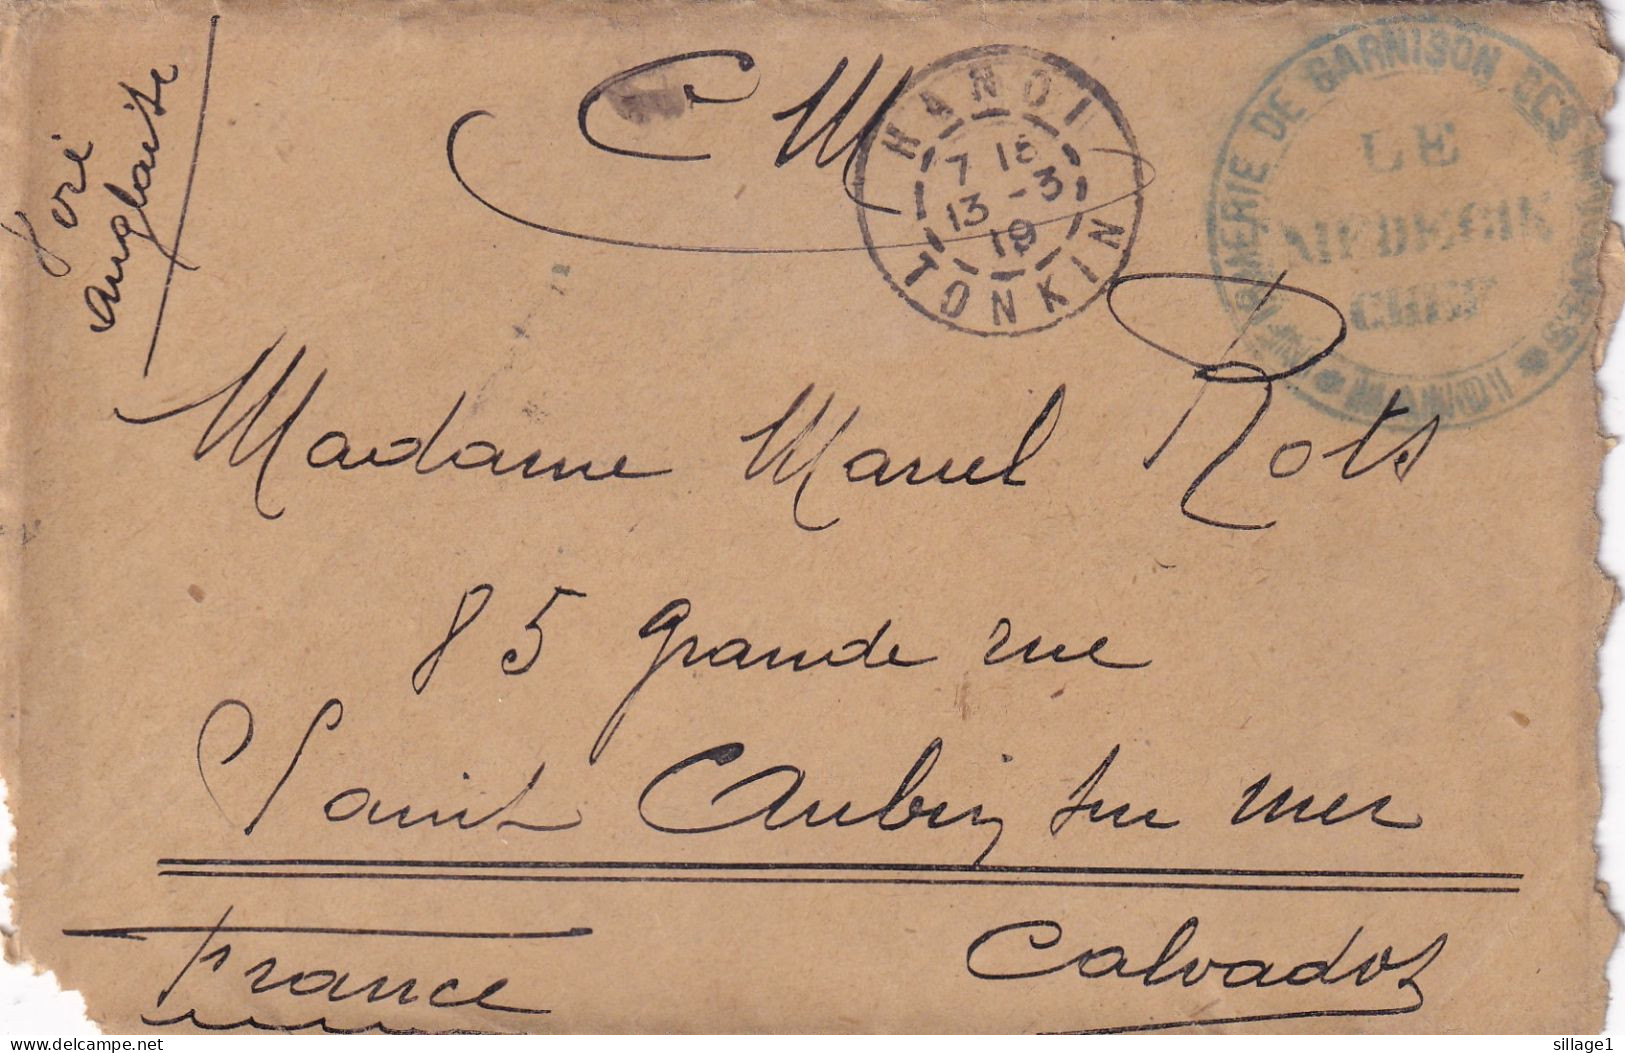 Voie
anglaise
CM
HANOI
7 15
13 - 3
19
TONKIN
DE GARNISON DES
LE
MEDECIN
CHEF
* HANOI *
Madame Marcel Rots
85 grande rue
Saint Aubin sur mer
France
Calvados
sillage1